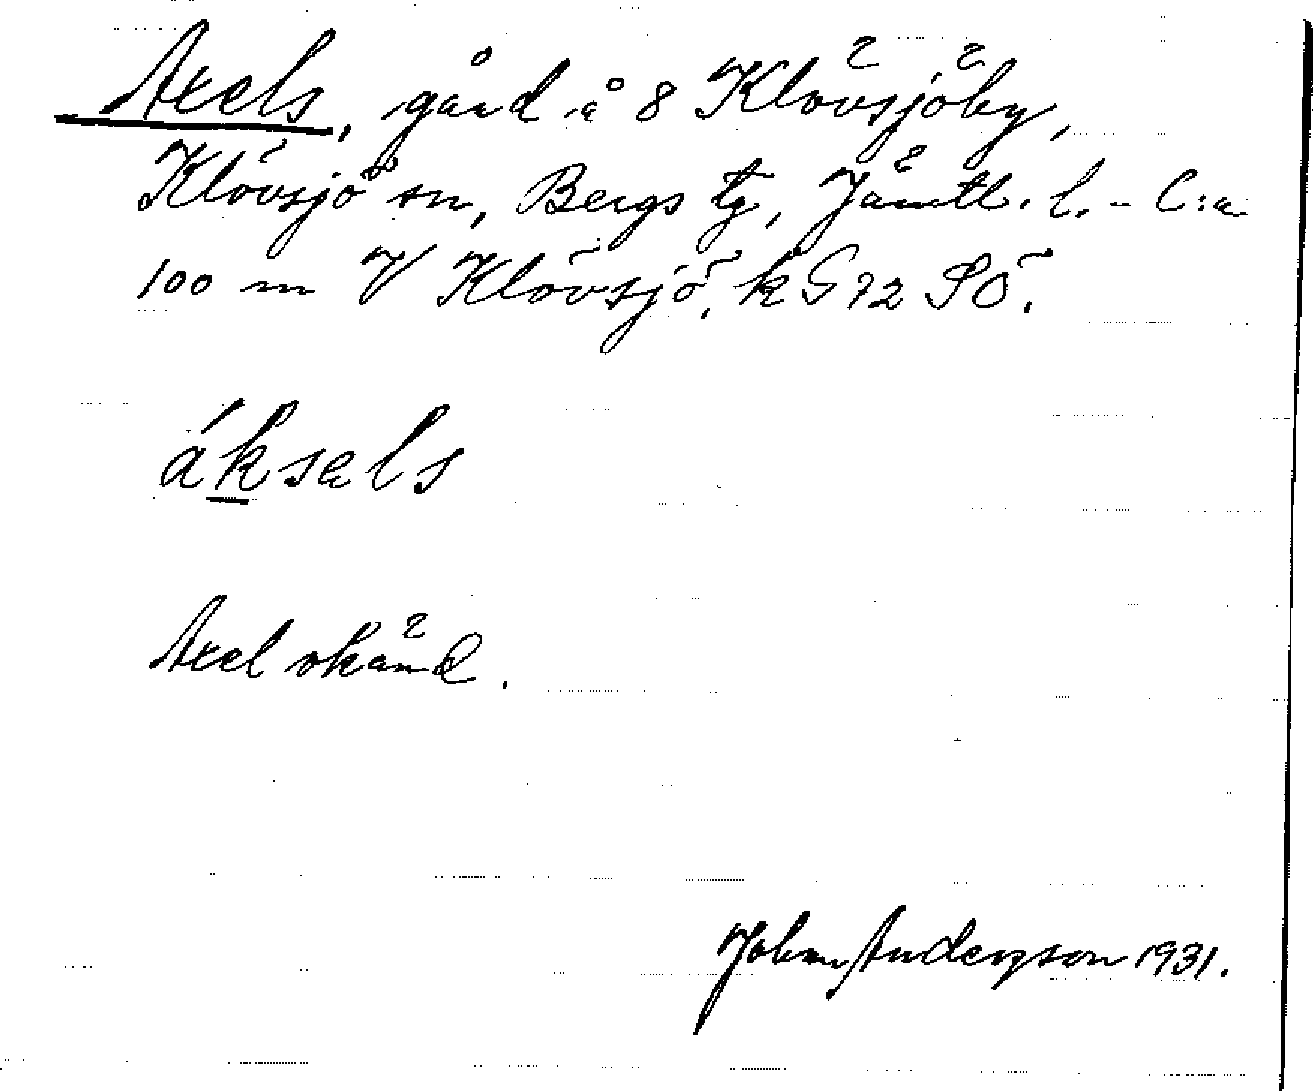 Axels, gård å 8 Klövsjöby,
Klövsjö sn, Bergs tg, Jämtl. l. - C:a
100 m V Klövsjö, k G 72 SÖ.
áksals
Axel okänd.
Johan Anderzson 1931.